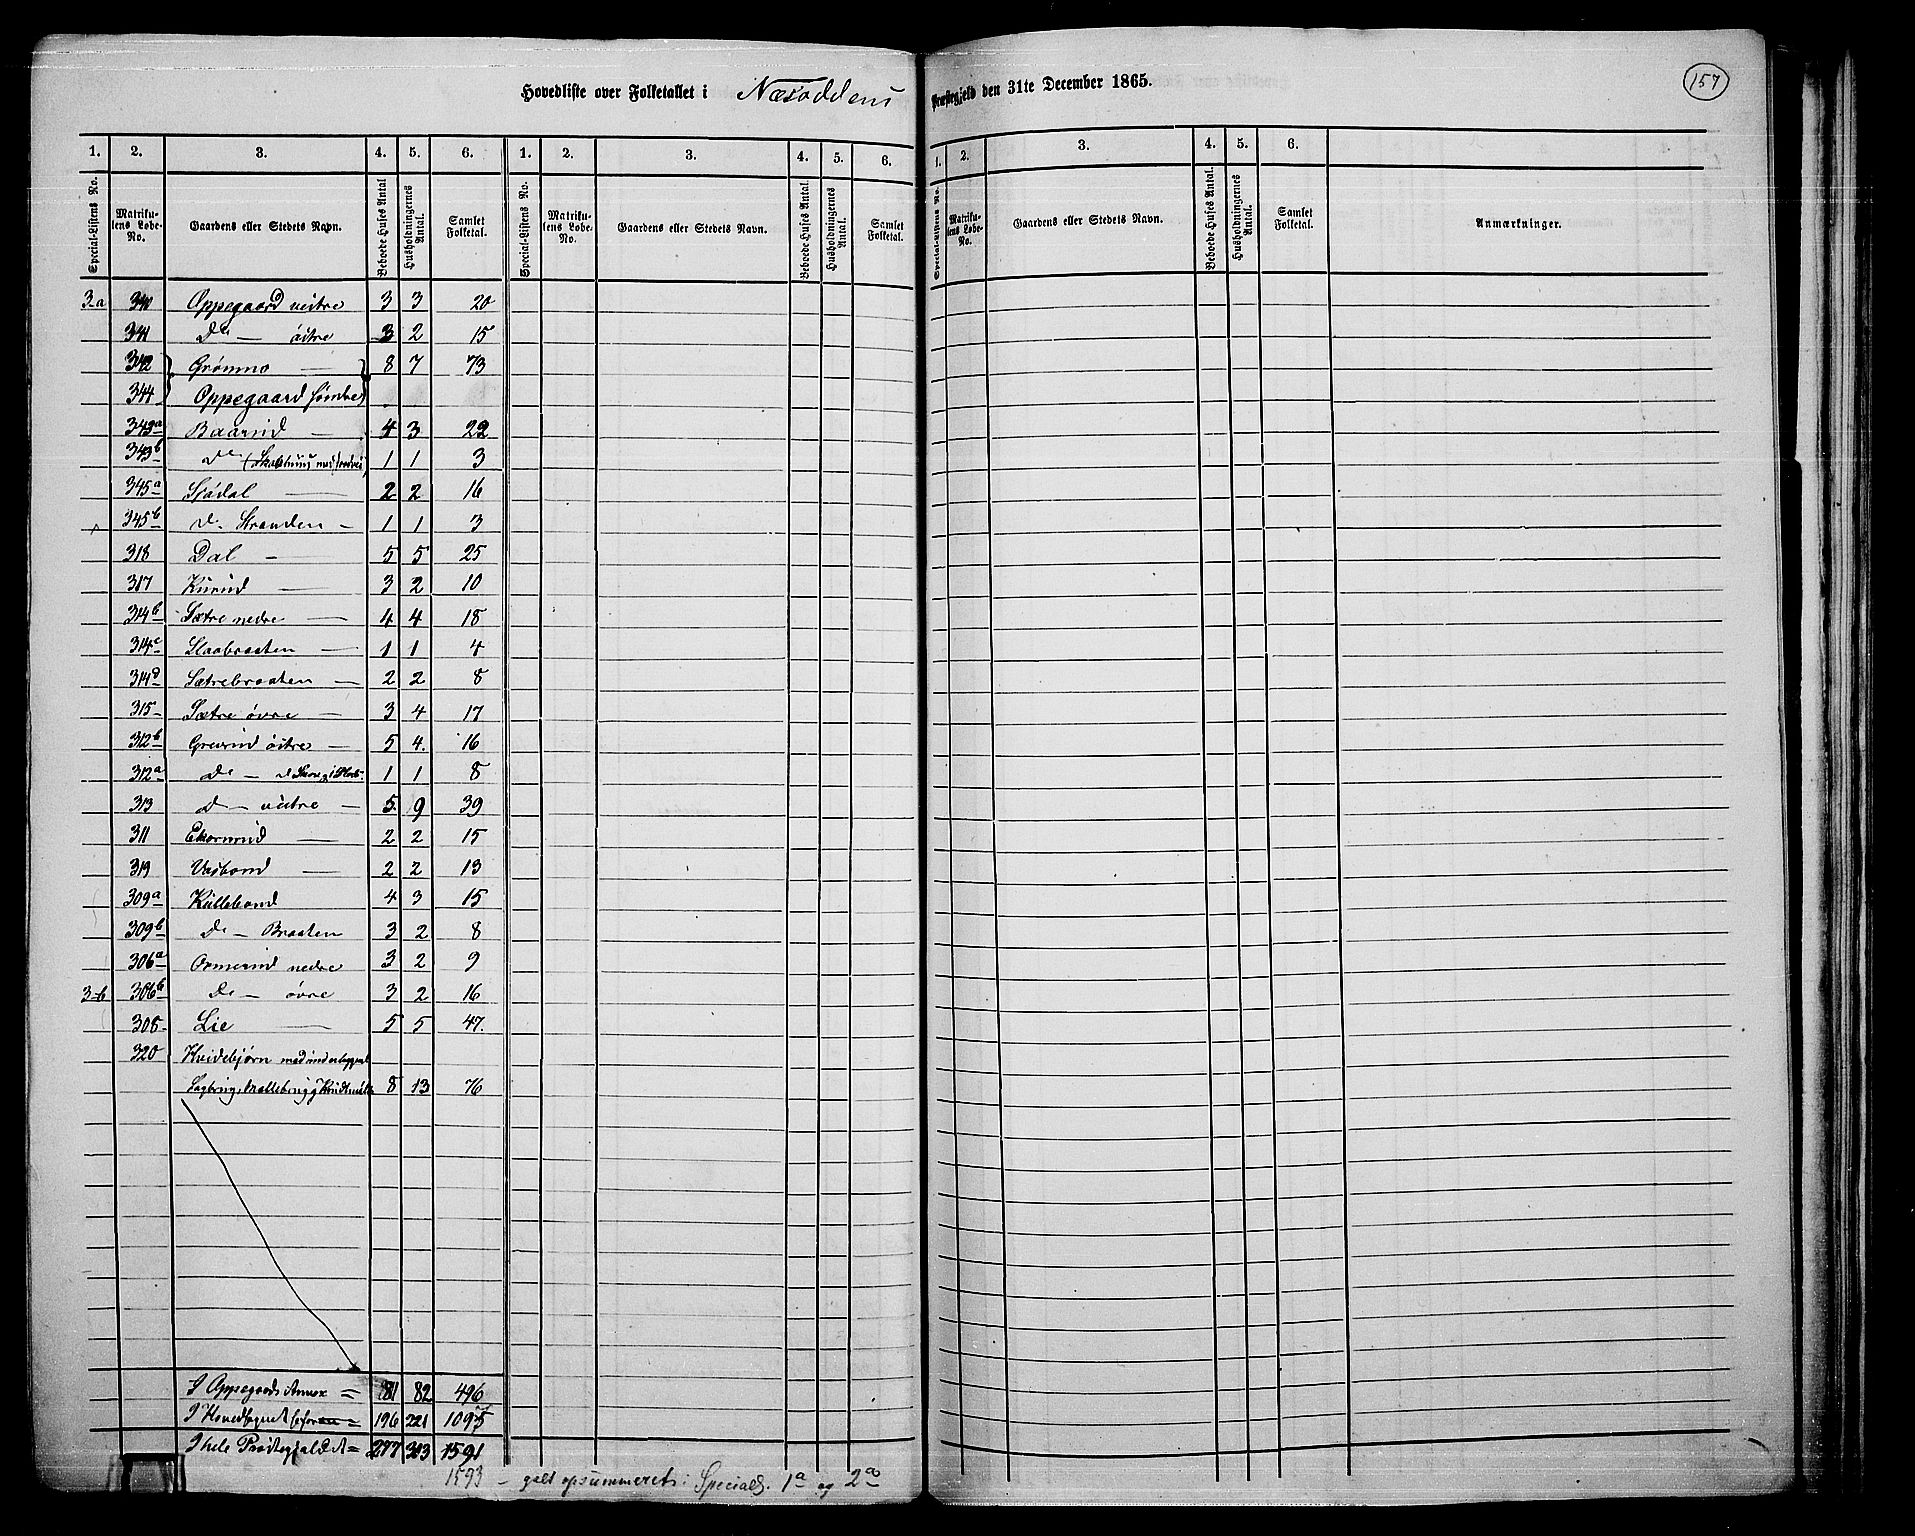 157
Hovedliste over Folketallet i Næsoddens Præstegjeld den 31te December 1865.
1. 2. 3. 4. 5. 6. 1. 2. 3. 4. 5. 6. 1. 2. 3. 4. 5. 6.
Special-Listens No. Matrikulens Løbe-No. Gaardens eller Stedets Navn. Beboede Huses Antal Husholdningernes Antal. Samlet Folketal. Special-Listens No. Matrikulens Løbe-No. Gaardens eller Stedets Navn. Beboede Huses Antal. Husholdningernes Antal. Samlet Folketal. Special-Listens No. Matrikulens Løbe-No. Gaardens eller Stedets Navn. Beboede Huses Antal. Husholdningernes Antal. Samlet Folketal. Anmærkninger.
3-a 340 Oppegaard vestre 3 3 20
341 Do — østre 3 2 15
342 Grønmo — 8 7 73
344 Oppegaard søndre
343a Baarud — 4 3 22
343b Do 1 1 3
345a Sjødal — 2 2 16
345b Do Stranden — 1 1 3
318 Dal — 5 5 25
317 Kurud — 3 2 10
314b Sætre nedre — 4 4 18
314c Slaabraaten — 1 1 4
314d Sætrebraaten — 2 2 8
315 Sætre øvre — 3 4 17
312b Greverud østre — 5 4 16
312a Do — 1 1 8
313 Do — vestre — 5 9 39
311 Ekornrud — 2 2 15
319 Vasbond — 2 2 13
309a Kullebond 4 3 15
309b Do — Braaten 3 2 8
306a Ormerud nedre 3 2 9
3-b 306b Do — øvre 3 2 16
308 Lie — 5 5 47
320 Hvidebjørn med underliggende
Sagbrug, Møllebrug og Krudtmølle 8 13 76
I Oppegaards Annex = 81 82 496
I Hovedsognet = 196 221 1095
I hele Præstegjeldet = 277 303 1591
1593 — galt opsummeret i Speciall. 1a og 2a